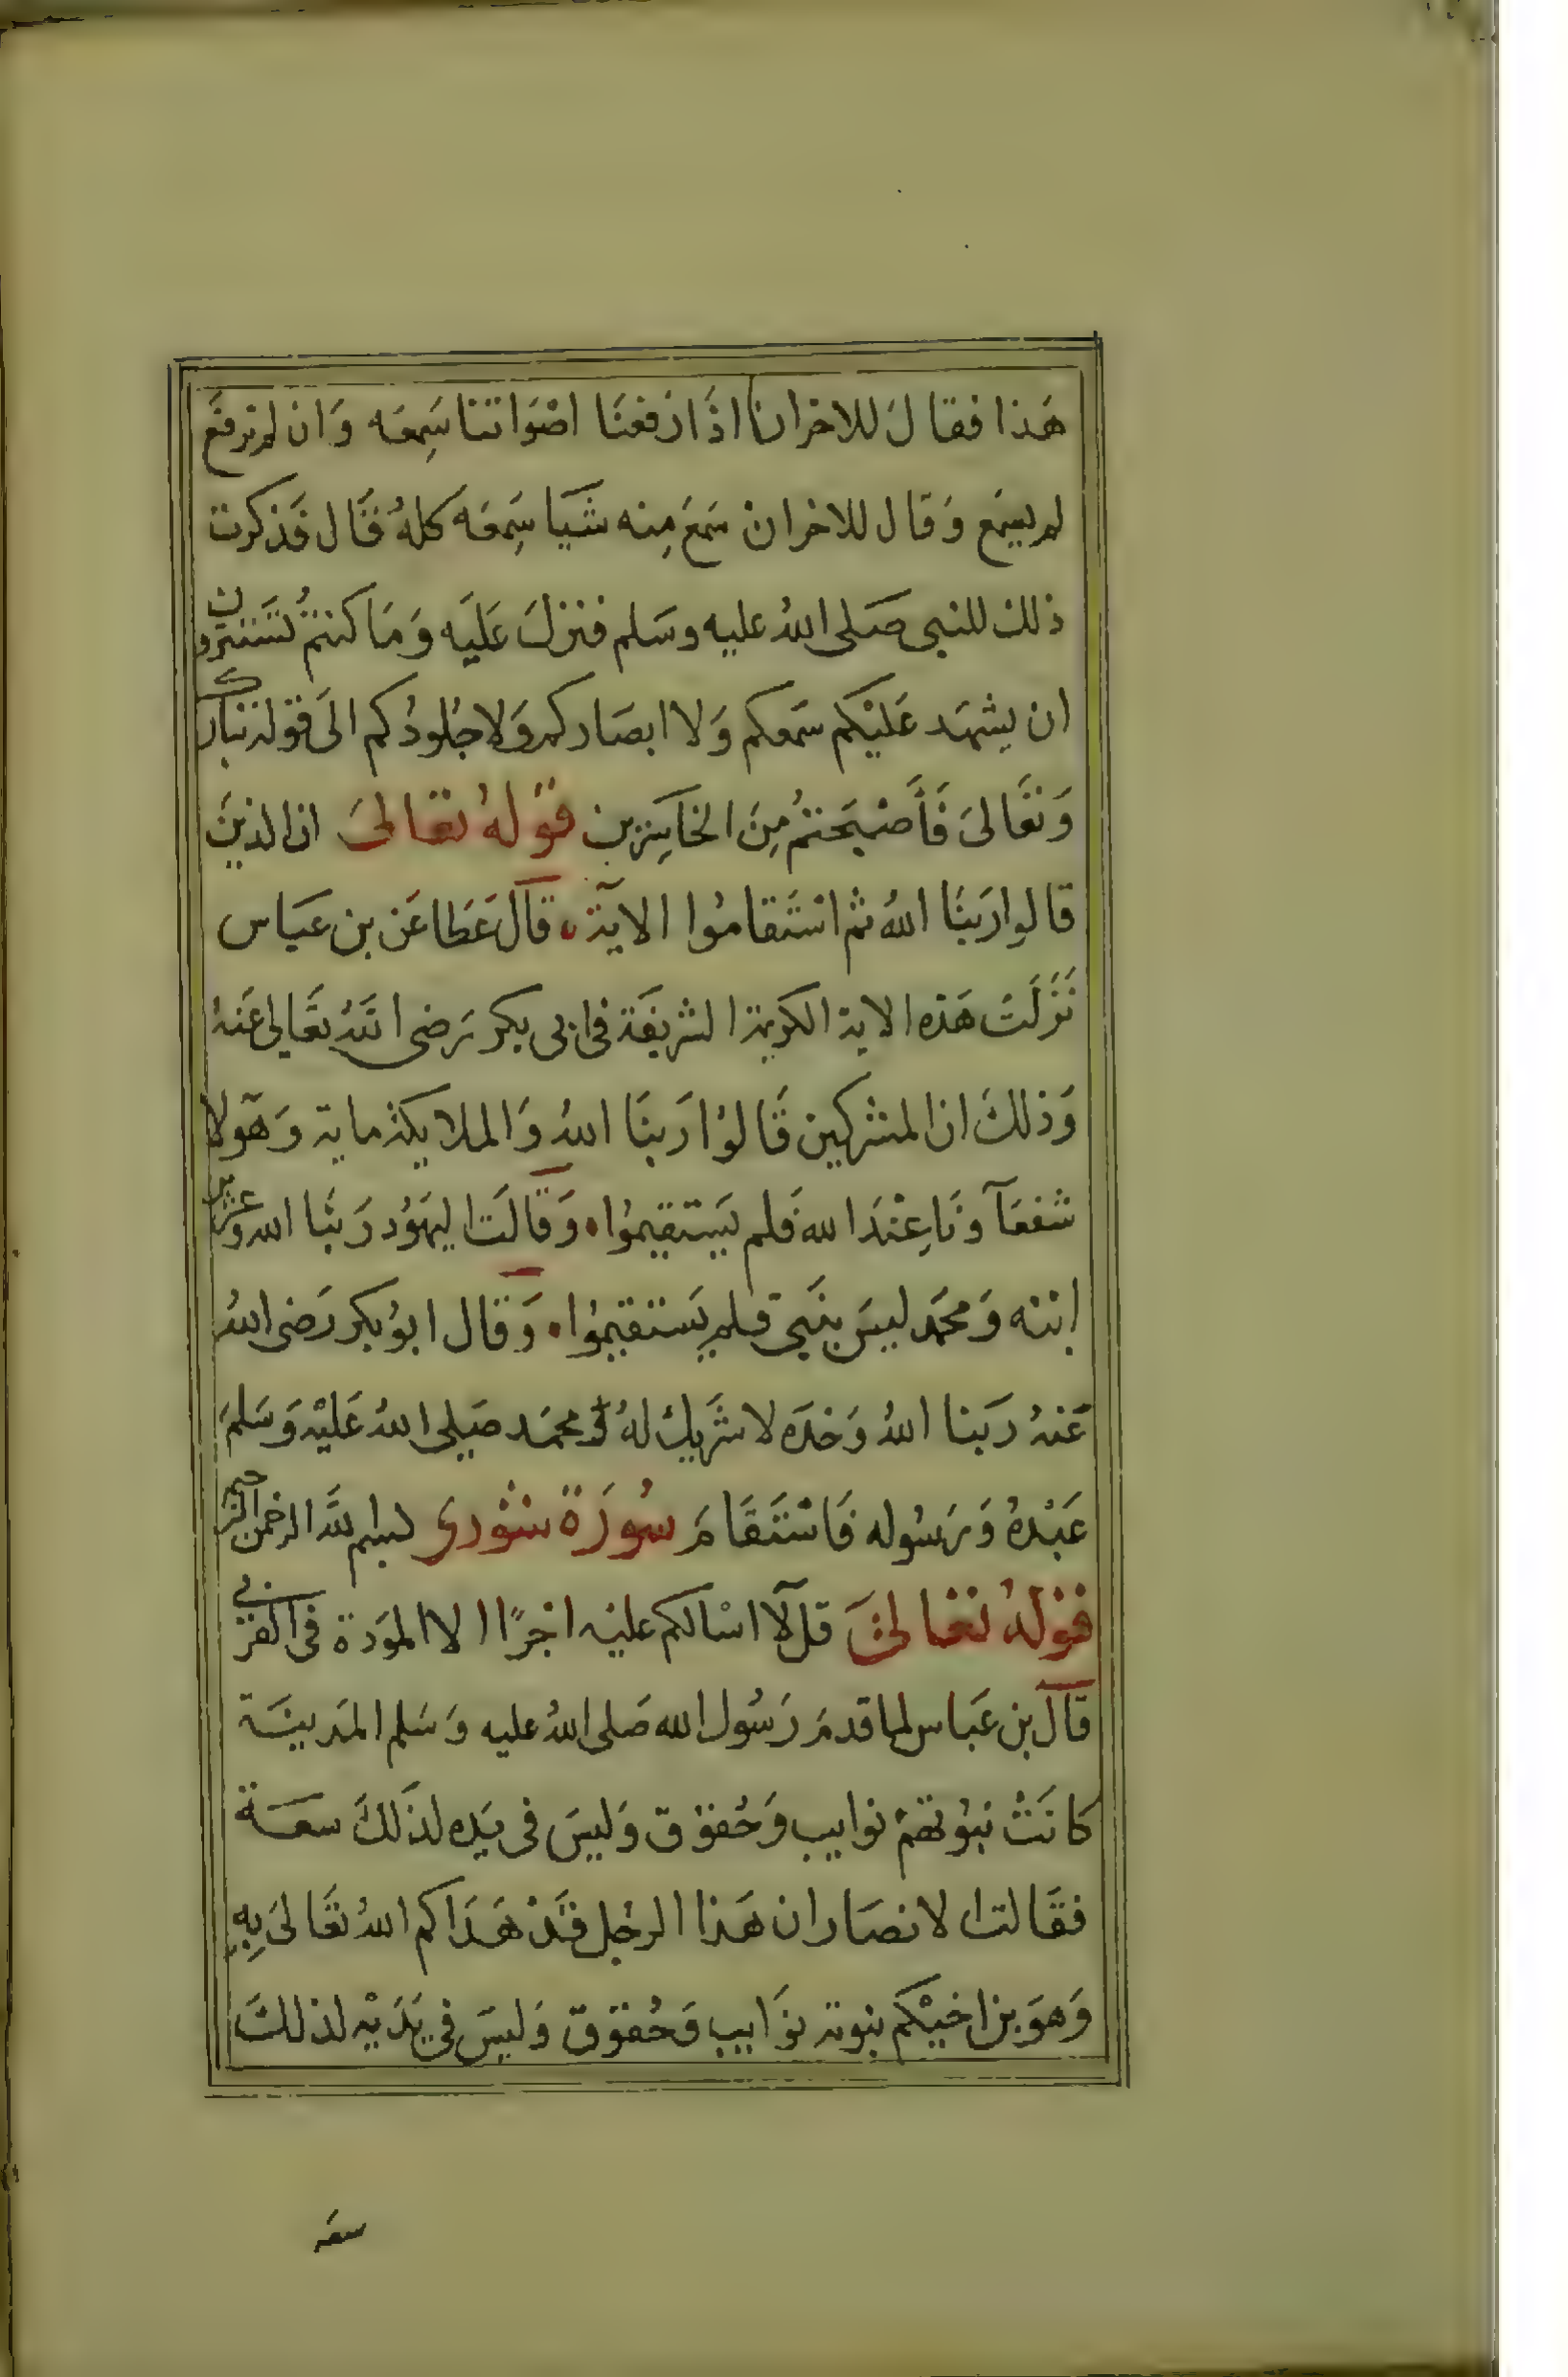 هَذا فقال للاخرانا اذَا ارَفعنَا اصْوَاتنا سَمِعَه وَان لم نرفَع
لم يسمَع وَقال للاخران سَمعَ مِنه شيَا سَمِعَه كلهُ قَال فَذكرت
ذلك للنبى صَلى اللهُ عليه وسَلم فنزلَ عَليَه وَمَا كنتمُ تسَتترون
ان يشهَد عَليْكم سَمعكم وَلا ابصَاركم وَلا جُلودُكم الىَ قوله تبارك
وَتعَالىَ فَأَصْبَحتمُ مِنَ الخاسِرين قوْلهُ تعَالىَ ان الذينَ
قالوا رَبنَا اللهُ ثم اسْتَقامُوا الاية قالَ عَطا عَن بن عبَاس
نَزَلَت هَذه الاية الكريمة الشريفَة فى ابى بكر رَضى اللهُ تعَالى عَنهُ
وَذلكَ ان المشركين قَالوُا رَبنَا اللهُ وَالملايكة بناته وَهَولا
شفعَآ ونَا عِنْدَ الله فَلم يَستقيموُا وَقالَت اليهَوُد رَبنا الله وعُزير
ابنه وَمحمَد ليسَ بنَبي فلم يَستقيموُا وَقَال ابوُ بكر رَضى اللهُ
عَنهُ رَبنا اللهُ وَحْدَه لا شَريك لهُ وَ محمَد صَلى اللهُ عَليْه وَسَلمَ
عَبْدهُ وَرَسُوله فَاسْتَقَامَ سُورَة شورى بسم لله الرحمن الرحيم
قوْلهُ تعَالىَ قل لآ اسْالكم عليْه اجْرًا الا الموَدة فىَ القرْبى
قالَ بن عَباس لما قدمَ رَسُول الله صَلى اللهُ عليه وَسَلم المَدينَة
كانَتْ تنوُبهُمْ نوايب وَحُقوُق وَليسَ فى يَده لذَلكَ سعَة
فقَالت الانصَار ان هَذا الرجُل قَدْ هَدَاكم اللهُ تعَالىَ بِهِ
وَهوَ بن اخيْكم تنوبه نوَايب وَحُقوُق وَليسَ فى يَدَيْه لذلكَ
سعَه